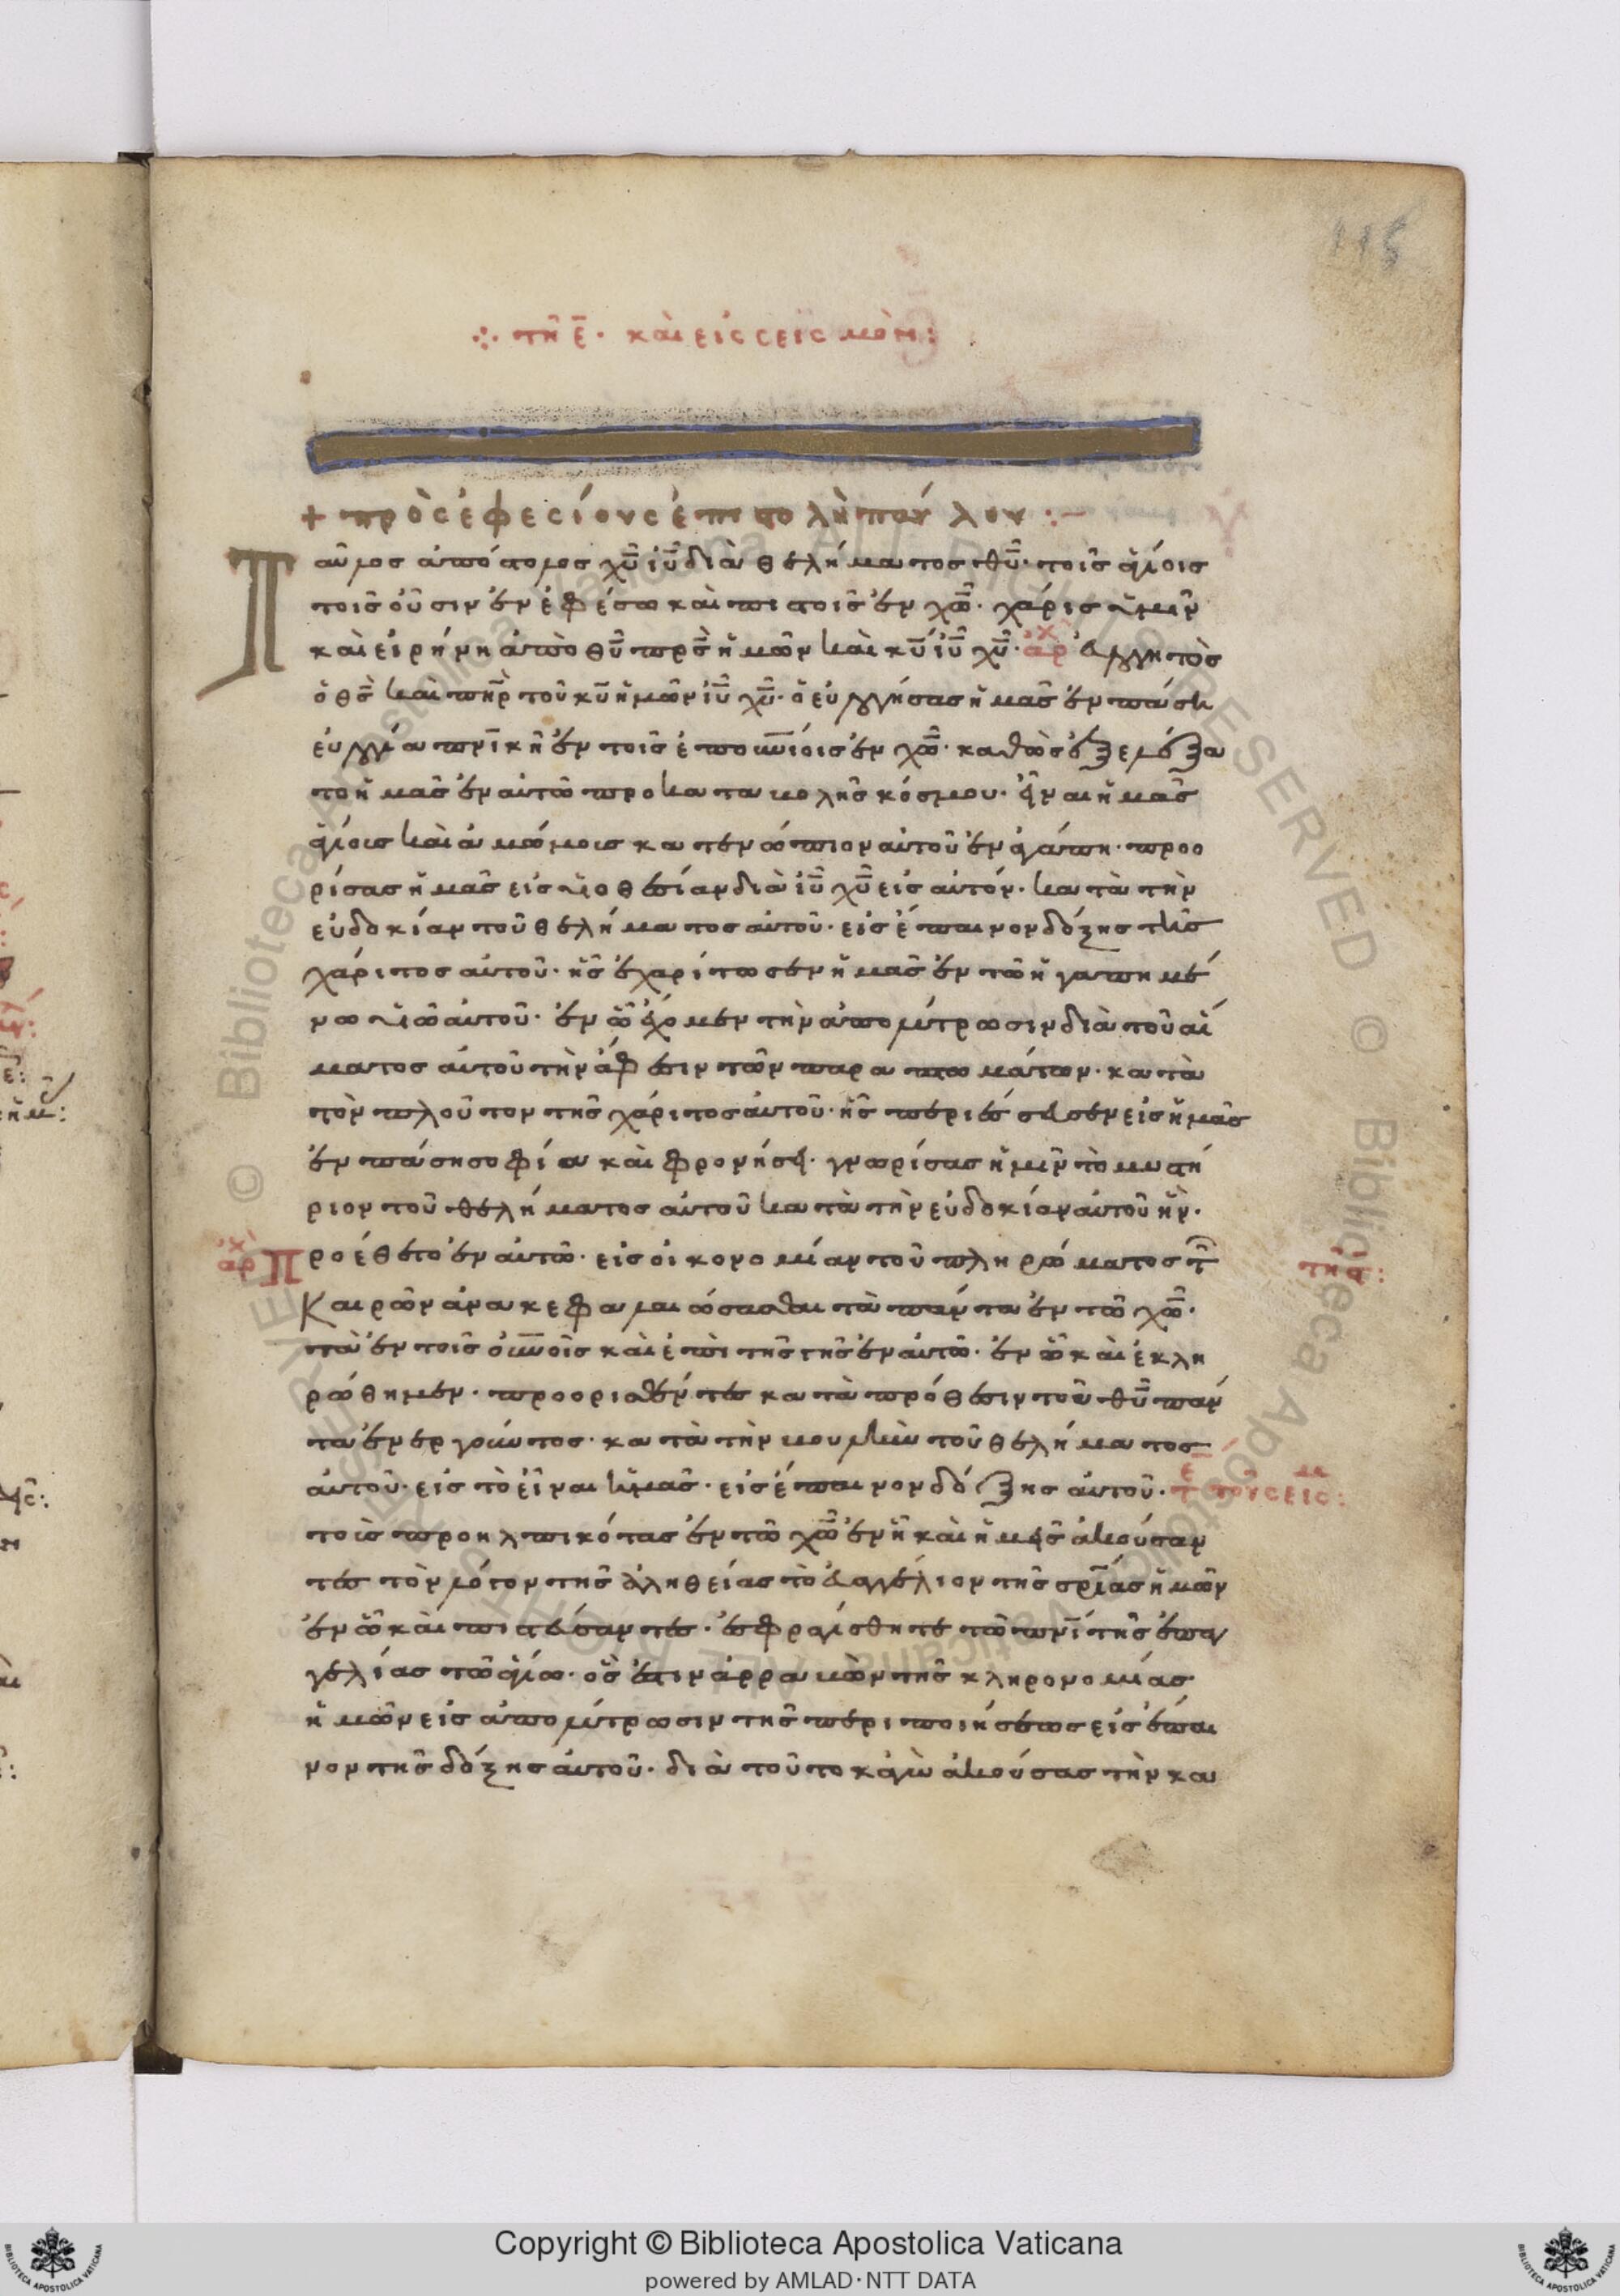 115
·:· τῆ ε̄· καὶ εἰς σεισμὸν:
+ πρὸς ἐφεσίους ἐπιστολὴ παύλου :–
Παῦλος ἀπόστολος χ̅υ̅ ἰ̅υ̅ διὰ θελήματος θ̅υ̅· τοῖς ἁγίοις
τοῖς οὖσιν ἐν ἐφέσω καὶ πιστοῖς ἐν χ̅ω̅· χάρις ὑμῖν
καὶ εἰρήνη ἀπὸ θ̅υ̅ π̅ρ̅ς̅ ἡμῶν καὶ κ̅υ̅ ἰ̅υ̅ χ̅υ̅· ἀρχ εὐλογητὸς
ὁ θ̅ς̅ καὶ π̅η̅ρ̅ τοῦ κ̅υ̅ ἡμῶν ἰ̅υ̅ χ̅υ̅· ὁ εὐλογήσας ἡμᾶς ἐν πάση
εὐλογία π̅ν̅ι̅κῆ ἐν τοῖς ἐπο̅υ̅ν̅ίοις ἐν χ̅ω̅· καθὼς ἐξελέξα
το ἡμᾶς ἐν αὐτῶ προ καταβολῆς κόσμου· εἶναι ἡμᾶς
ἁγίοις καὶ ἀμώμοις κατενώπιον αὐτοῦ ἐν ἀγάπη· προο
ρίσας ἡμᾶς εἰς υἱοθεσίαν διὰ ἰ̅υ̅ χ̅υ̅ εἰς αὐτόν· κατὰ τὴν
εὐδοκίαν τοῦ θελήματος αὐτοῦ· εἰς ἔπαινον δόξης τῆς
χάριτος αὐτοῦ· ἧς ἐχαρίτωσεν ἡμᾶς ἐν τῶ ἠγαπημέ
νω υἱῶ αὐτοῦ· ἐν ᾧ ἔχομεν τὴν ἀπολύτρωσιν διὰ τοῦ αἵ
ματος αὐτοῦ τὴν ἄφεσιν τῶν παραπτωμάτων· κατὰ
τὸν πλοῦτον τῆς χάριτος αὐτοῦ· ἧς περιέσσευσεν εἰς ἡμᾶς
ἐν πάση σοφία καὶ φρονήσει· γνωρίσας ἡμῖν τὸ μυστή
ριον τοῦ θελήματος αὐτοῦ κατὰ τὴν εὐδοκίαν αὐτοῦ ἣν·
ἀρχ Προέθετο ἐν αὐτῶ· εἰς οἰκονομίαν τοῦ πληρώματος τῶν
Καιρῶν ἀνακεφαλαιώσασθαι τὰ πάντα ἐν τῶ χ̅ω̅·
τὰ ἐν τοῖς ο̅υ̅ν̅οῖς καὶ ἐπὶ τῆς γῆς ἐν αὐτῶ· ἐν ᾧ καὶ ἐκλη
ρώθημεν· προορισθέντες κατὰ πρόθεσιν τοῦ θ̅υ̅ πάν
τα ἐνεργοῦντος· κατὰ τὴν βουλὴν τοῦ θελήματος
αὐτοῦ· εἰς τὸ εἶναι ἡμᾶς· εἰς ἔπαινον δόξης αὐτοῦ· τε τοῦ σεισμ:
τοὺς προηλπικότας ἐν τῶ χ̅ω̅ ἐν ἧ καὶ ἡμεῖς ἀκούσαν
τες τὸν λόγον τῆς ἀληθείας τὸ εὐαγγέλιον τῆς σ̅ρ̅ι̅ας ἡμῶν
ἐν ᾧ καὶ πιστεύσαντες· ἐσφραγίσθητε τῶ π̅ν̅ι̅ τῆς ἐπαγ
γελίας τῶ ἁγίω· ὅς ἐστιν ἀρραβὼν τῆς κληρονομίας
ἡμῶν εἰς ἀπολύτρωσιν τῆς περιποιήσεως εἰς ἔπαι
νον τῆς δόξης αὐτοῦ· διὰ τοῦτο κἀγὼ ἀκούσας τὴν κα
Copyright © Biblioteca Apostolica Vaticana
powered by AMLAD·NTT DATA